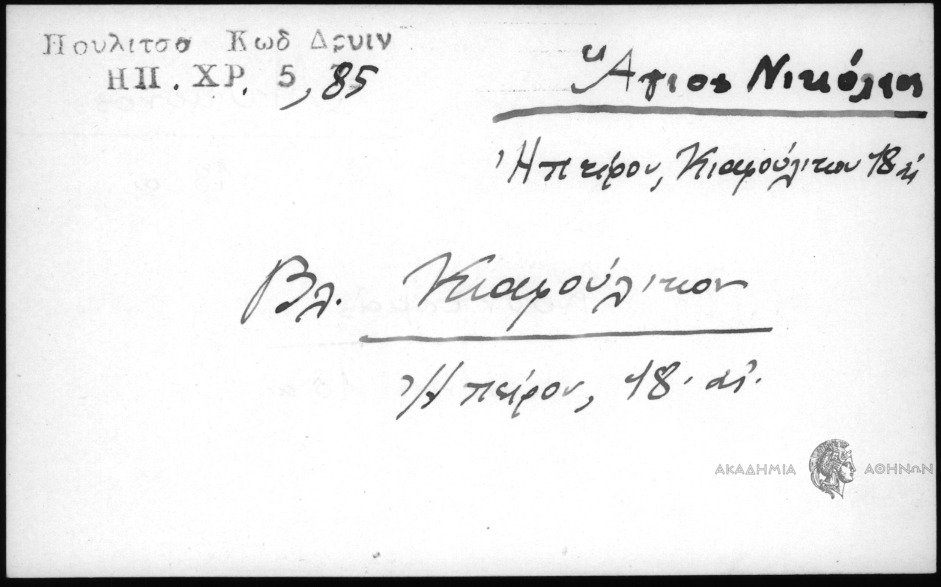 Πουλιτσα Κωδ Δρυιν
ΗΠ. ΧΡ. 5, 85
Ἅγιος Νικόλαος
Ἠπείρου, Κιαφούλιτον 18 αἰ
Βλ. Κιαφούλιτον
Ἠπείρου, 18. αἰ.
ΑΚΑΔΗΜΙΑ ΑΘΗΝΩΝ